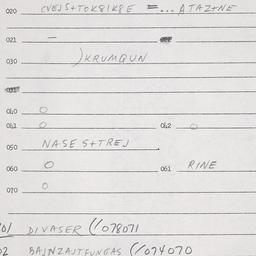 020 CVEJS+TOK8IK8E =... ATAZ+NE
021 —
030 )KRUMQUN
040 O
041 O 042 O
050 NASES+TREJ
060 O 061 RINE
070 O
01 DIVASER (/078071
02 BAJNZAJTFUNGAS (/074070